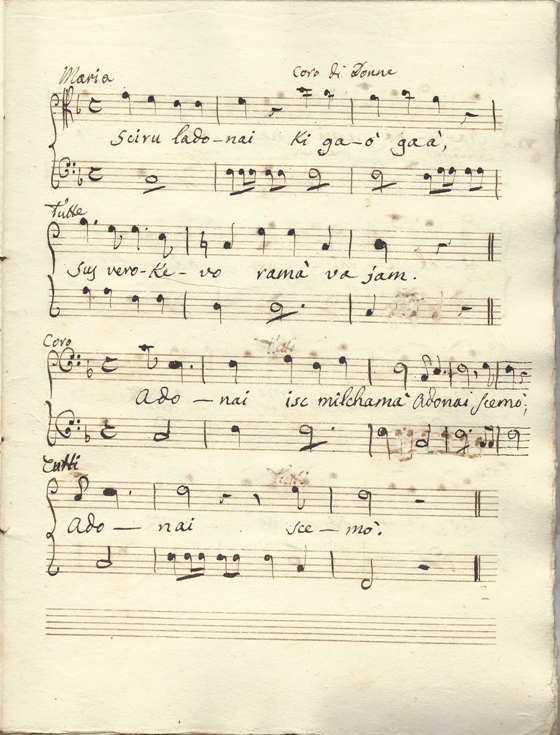 Maria Coro di Donne
Sciru lado-nai Ki ga-ò gaà,
Tutte
Sus vero-Ke-vo ramà va jam.
Coro
Ado-nai isc milchamà Adonai scemò;
Tutti
Ado-nai sce-mò.